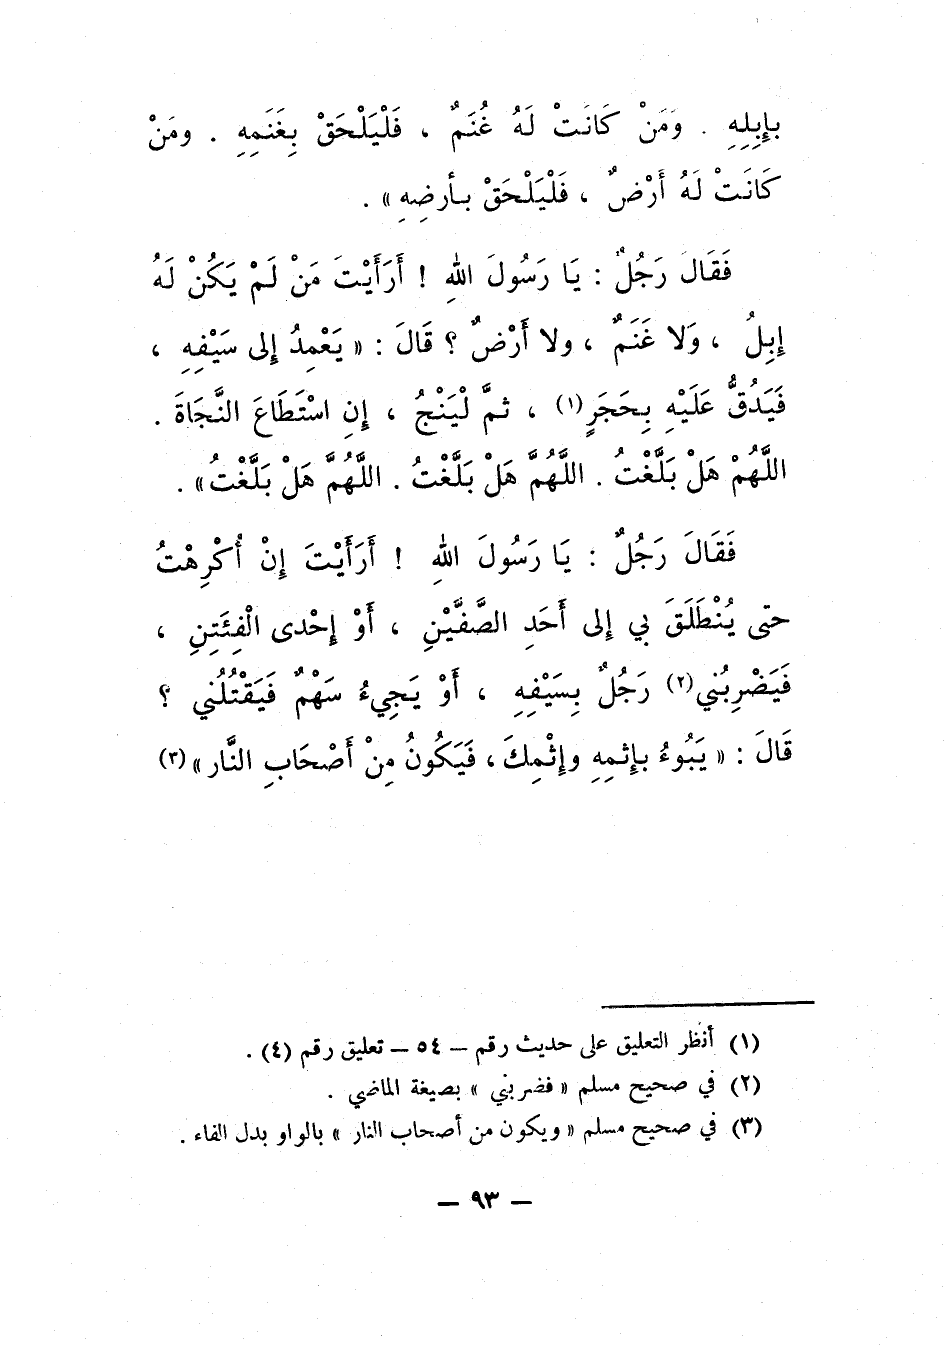 بإِبِلِهِ . وَمَنْ كَانَتْ لَهُ غُنَمٌ ، فَلْيَلْحَقْ بِغَنَمِهِ . ومَنْ
كَانَتْ لَهُ أَرْضٌ ، فَلْيَلْحَقْ بـأرضِهِ » .
فَقَالَ رَجُلٌ : يَا رَسُولَ اللهِ ! أَرَأَيْتَ مَنْ لَمْ يَكُنْ لَهُ
إِبِلُ ، وَلا غَنَمٌ ، ولا أَرْضٌ ؟ قَالَ : « يَعْمِدُ إِلى سَيْفِهِ ،
فَيَدُقُّ عَلَيْهِ بِحَجَرٍ (١) ، ثمَّ لْيَنْجُ ، إِنِ اسْتَطَاعَ النَّجَاةَ .
اللَّهُمْ هَلْ بَلَّغْتُ . اللَّهُمَّ هَلْ بَلَّغْتُ . اللَّهُمَّ هَلْ بَلَّغْتُ » .
فَقَالَ رَجُلٌ : يَا رَسُولَ اللهِ ! أَرَأَيْتَ إِنْ أُكْرِهْتُ
حتى يُنْطَلَقَ بي إِلى أَحَدِ الصَّفَّيْنِ ، أَوْ إِحْدى الْفِئَتِنِ ،
فَيَضْرِبُني (٢) رَجُلٌ بِسَيْفِهِ ، أَوْ يَجِيءُ سَهْمٌ فَيَقْتُلُني ؟
قَالَ : « يَبُوءُ بإِثمِهِ وإِثْمِكَ ، فَيَكُونُ مِنْ أَصْحَابِ النَّار » (٣)
(١) أنظر التعليق على حديث رقم – ٥٤ – تعليق رقم (٤) .
(٢) في صحيح مسلم « فضربني » بصيغة الماضي .
(٣) في صحيح مسلم « ويكون من أصحاب النار » بالواو بدل الفاء .
– ٩٣ –